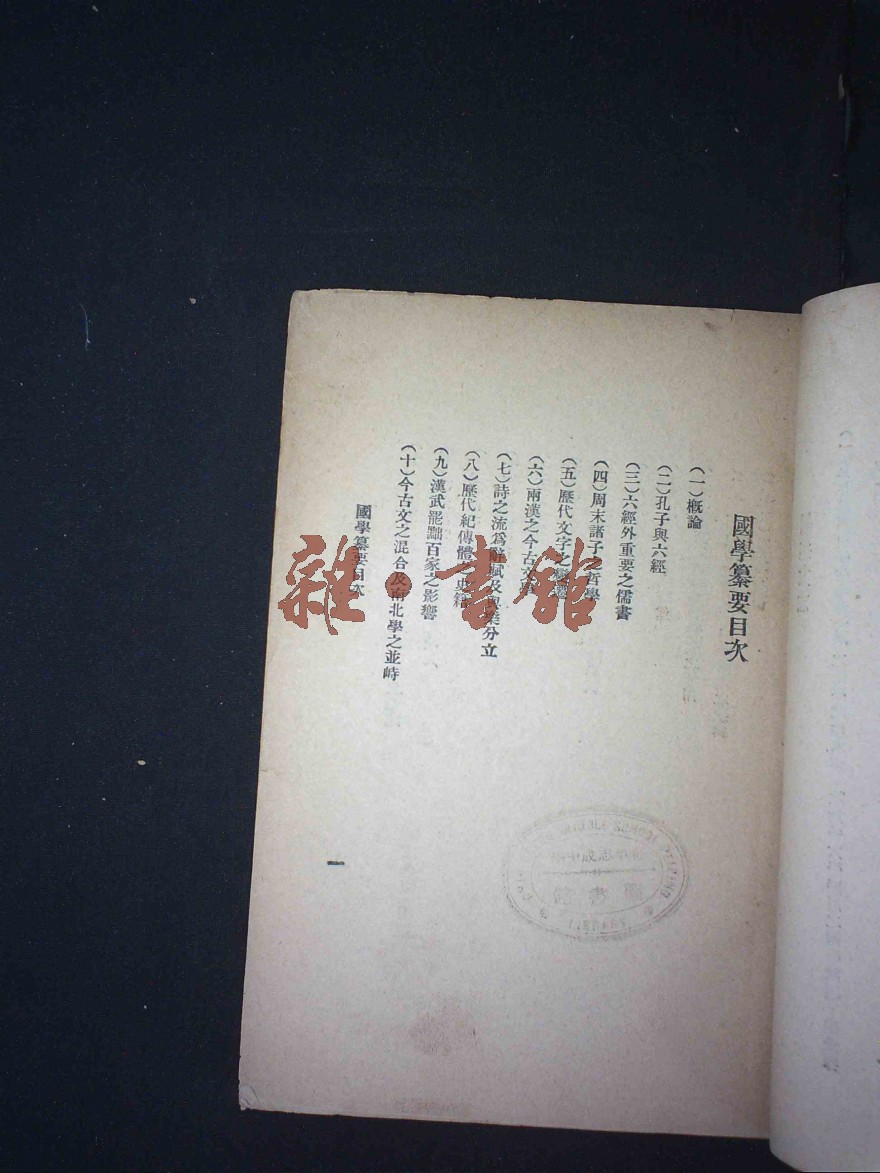 國學纂要目次
(一)概論
(二)孔子與六經
(三)六經外重要之儒書
(四)周末諸子之哲學
(五)歷代文字之變遷
(六)兩漢之今古文
(七)詩之流爲辭賦及與樂分立
(八)歷代紀傳體之史籍
(九)漢武罷黜百家之影響
(十)今古文之混合及南北學之並峙
國學纂要目次
一
雜·書館